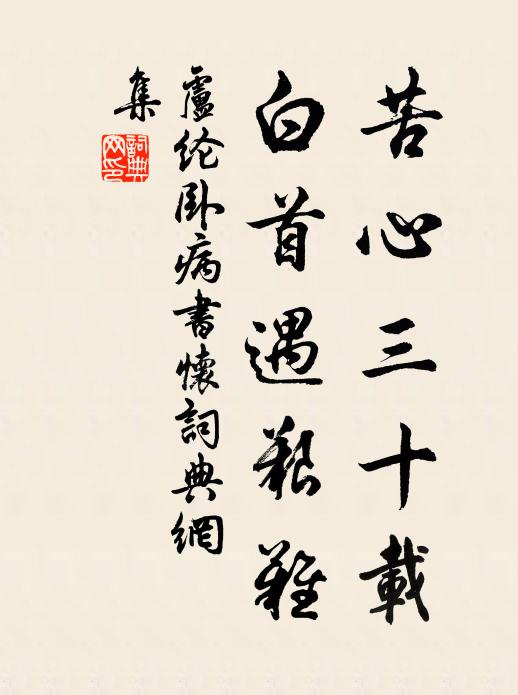 苦心三十載
白首遇艱難
盧綸卧病書懷詞典網
集
詞典
网印